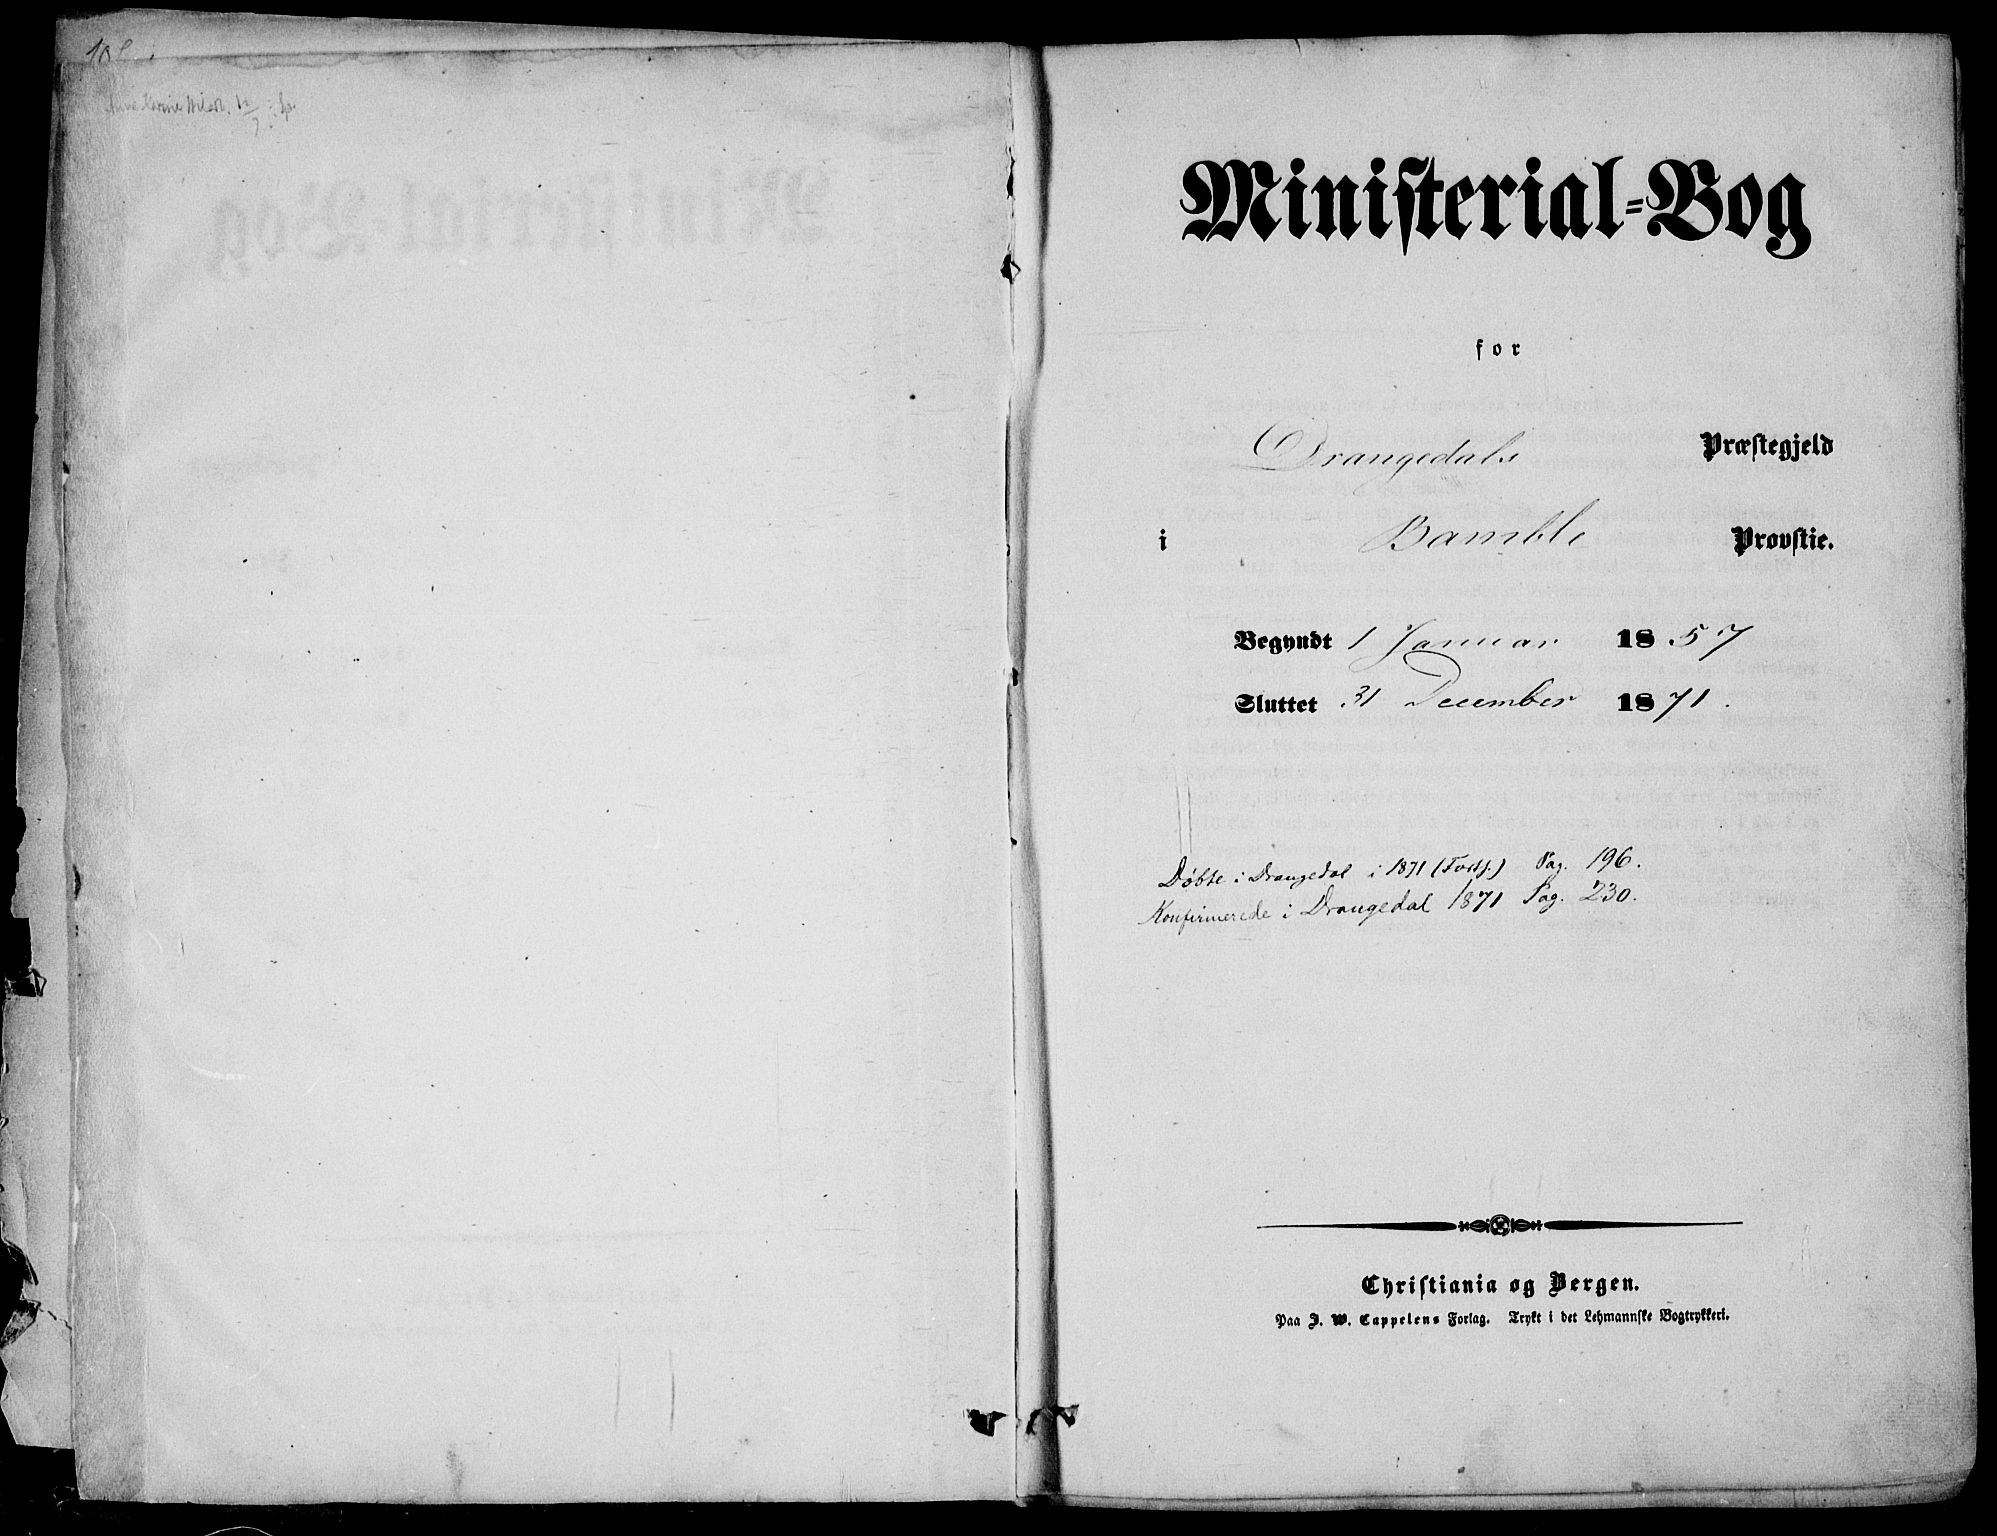 Ministerial-Bog
for
Drangedals Præstegjeld
i Bamble Provstie.
Begyndt 1 Januar 1857
Sluttet 31 December 1871.
Døbte i Drangedal i 1871 (Forts.) Pag. 196.
Konfirmerede i Drangedal 1871 Pag. 230.
Christiania og Bergen.
Paa J. W. Cappelens Forlag. Trykt i det Lehmannske Bogtrykkeri.